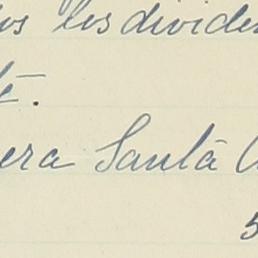 os les divide
te.
era Santa
5